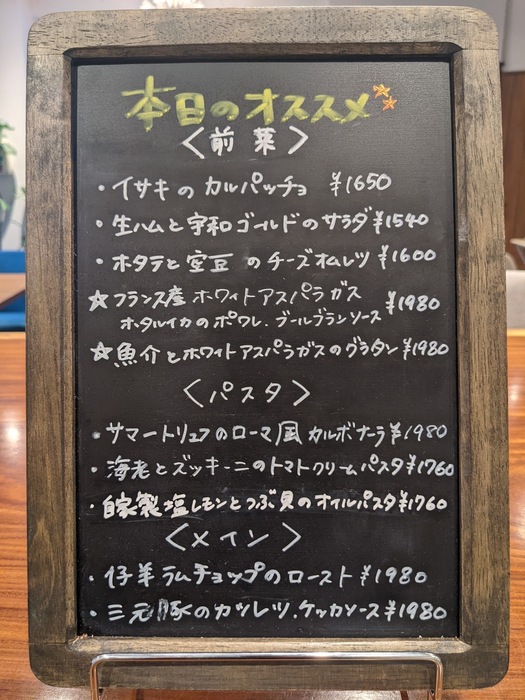 本日のオススメ
〈前菜〉
・イサキのカルパッチョ ¥1650
・生ハムと宇和ゴールドのサラダ ¥1540
・ホタテと空豆のチーズオムレツ ¥1600
☆フランス産ホワイトアスパラガス ¥1980
ホタルイカのポワレ.ブールブランソース
☆魚介とホワイトアスパラガスのグラタン ¥1980
〈パスタ〉
・サマートリュフのローマ風カルボナーラ ¥1980
・海老とズッキーニのトマトクリームパスタ ¥1760
・自家製塩レモンとつぶ貝のオイルパスタ ¥1760
〈メイン〉
・仔羊ラムチョップのロースト ¥1980
・三元豚のカツレツ.ケッカソース ¥1980